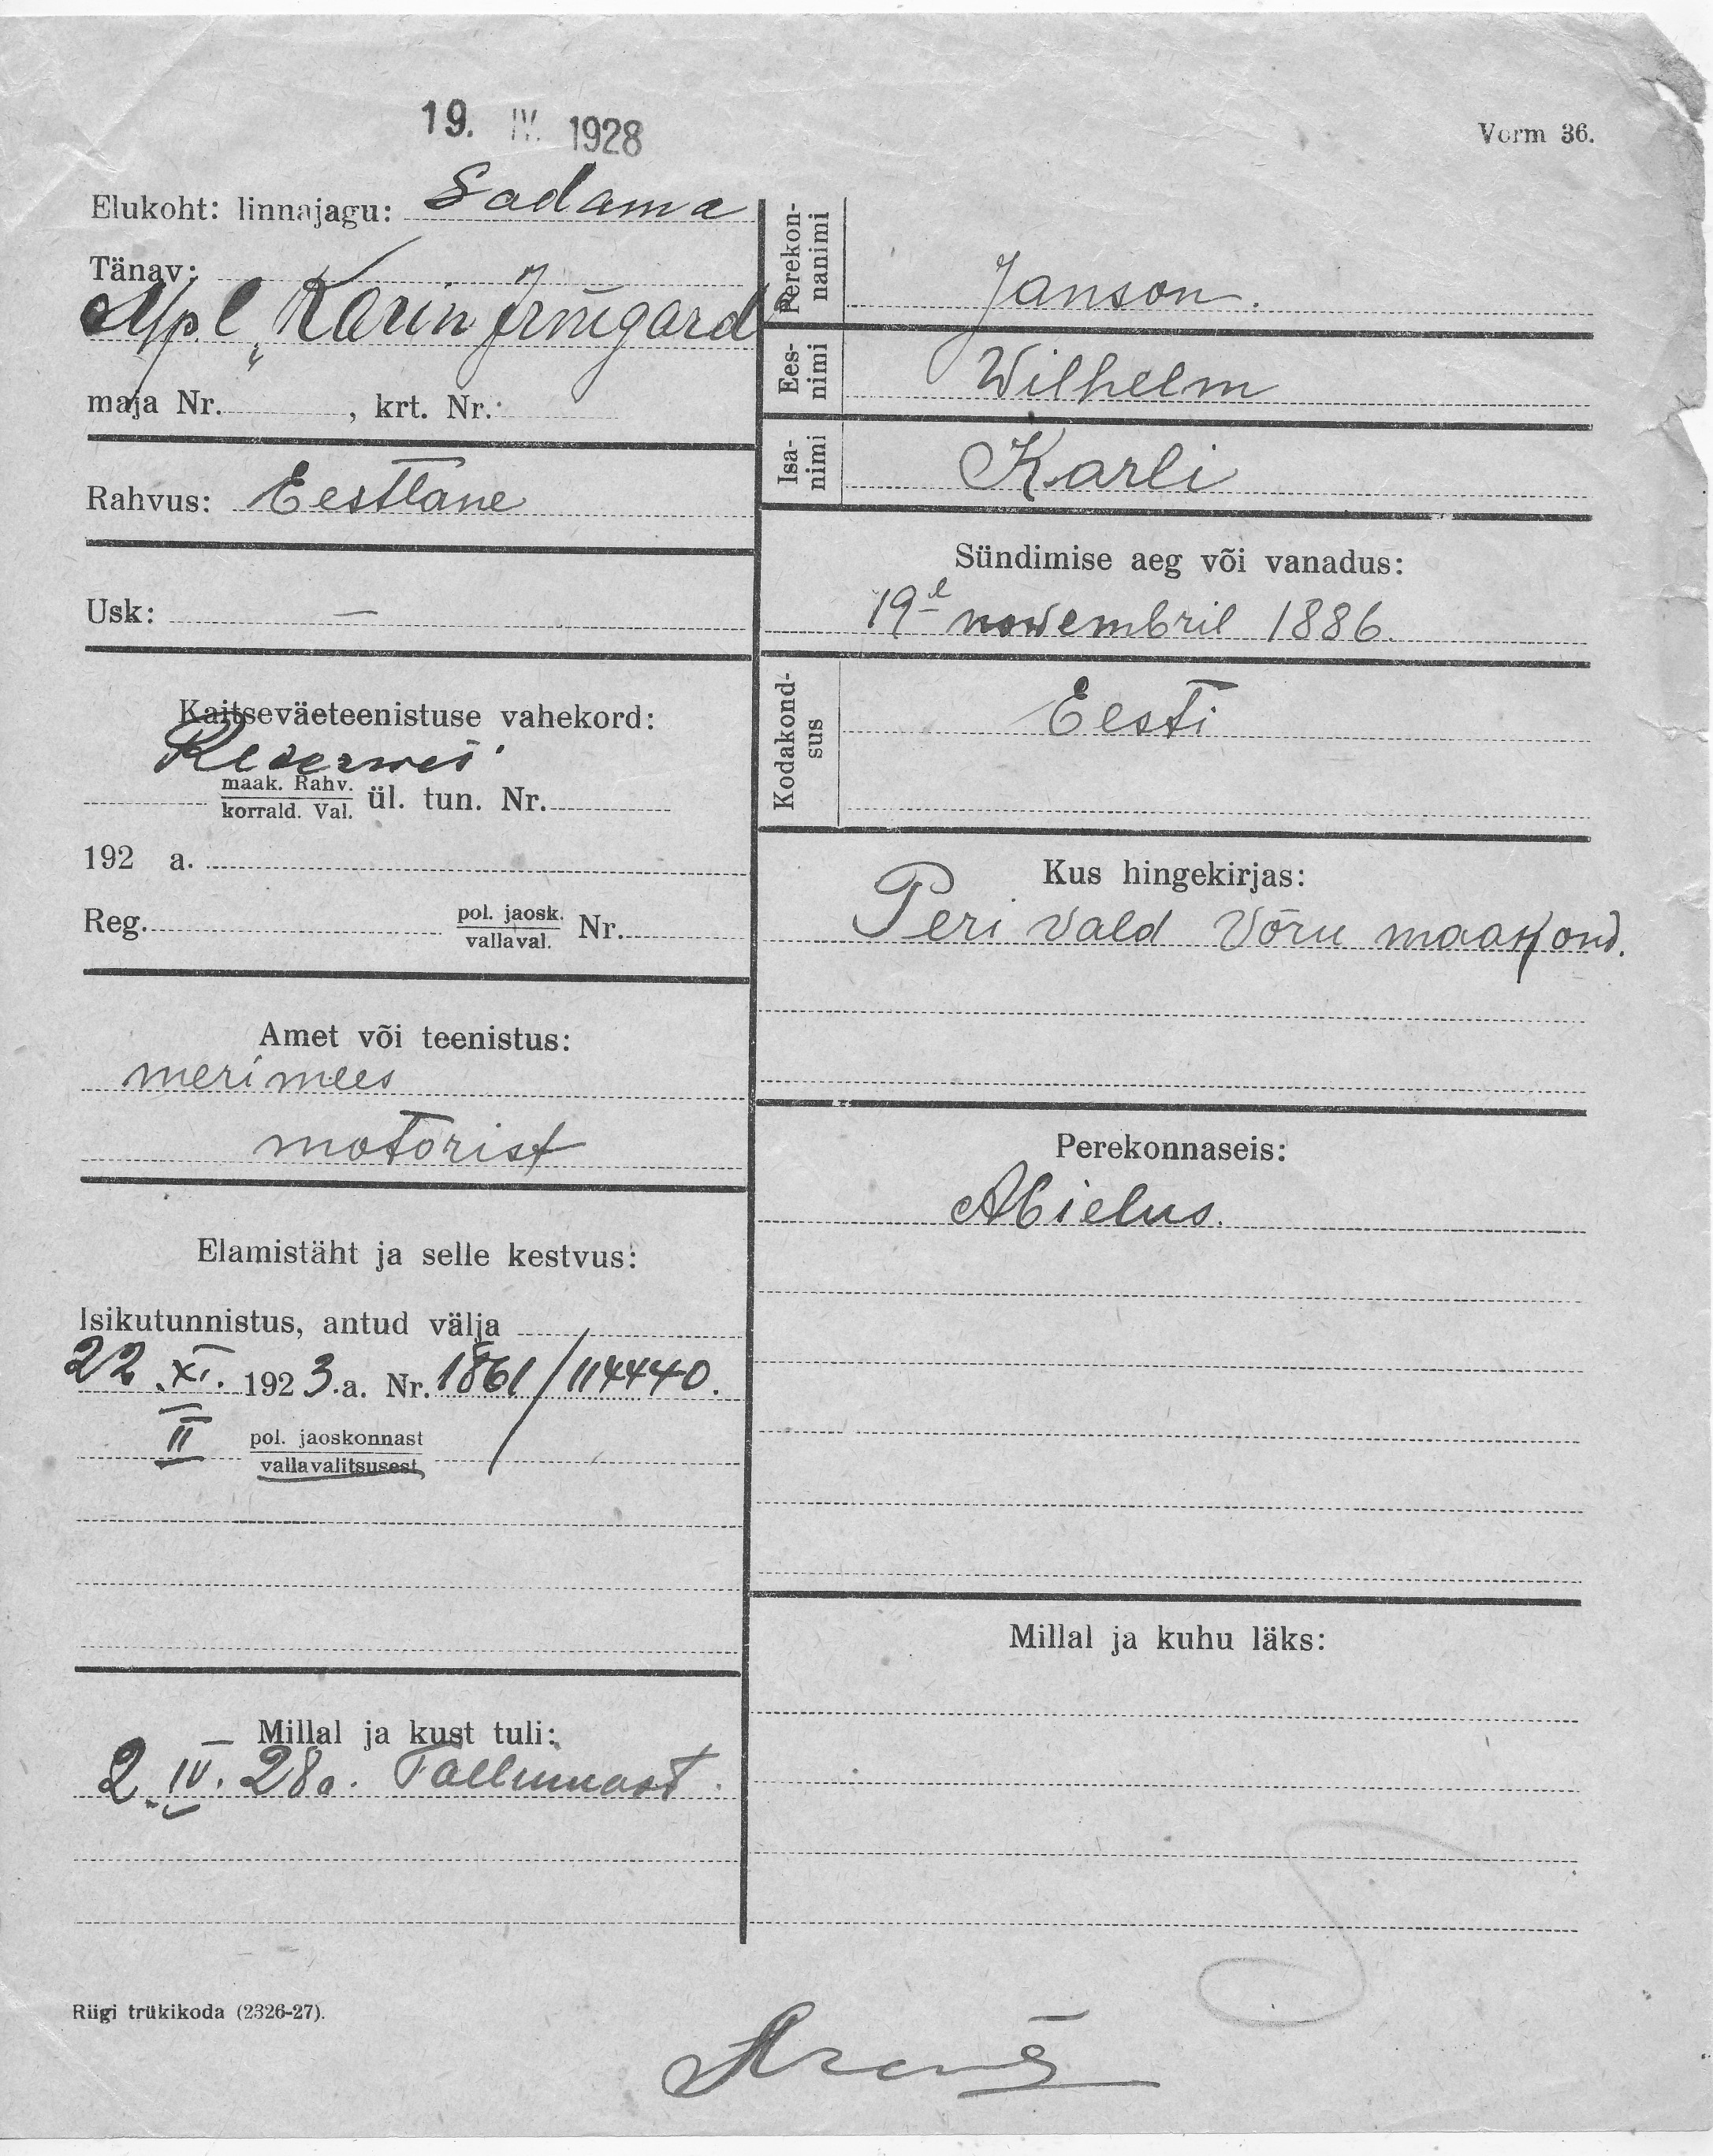 19. IV. 1928
Vorm 36.
Elukoht: linnajagu: Sadama
Tänav:
M/p.l „Karin Irmgard"
maja Nr. , krt. Nr.
Rahvus: Eestlane
Usk: —
Kaitseväeteenistuse vahekord:
Reserwis
maak. Rahv.
korrald. Val. ül. tun. Nr.
192 a.
Reg. pol. jaosk.
vallaval. Nr.
Amet või teenistus:
merimees
motorist
Elamistäht ja selle kestvus:
Isikutunnistus, antud välja
22.XI. 1923.a. Nr. 1861/114440.
II pol. jaoskonnast
vallavalitsusest
Millal ja kust tuli:
2.IV.28a. Tallinnast.
Riigi trükikoda (2326-27).
Perekon-
nanimi
Janson.
Ees-
nimi
Wilhelm
Isa-
nimi
Karli
Sündimise aeg või vanadus:
19l nowembril 1886.
Kodakond-
sus
Eesti
Kus hingekirjas:
Peri vald Võru maakond.
Perekonnaseis:
Abielus.
Millal ja kuhu läks: